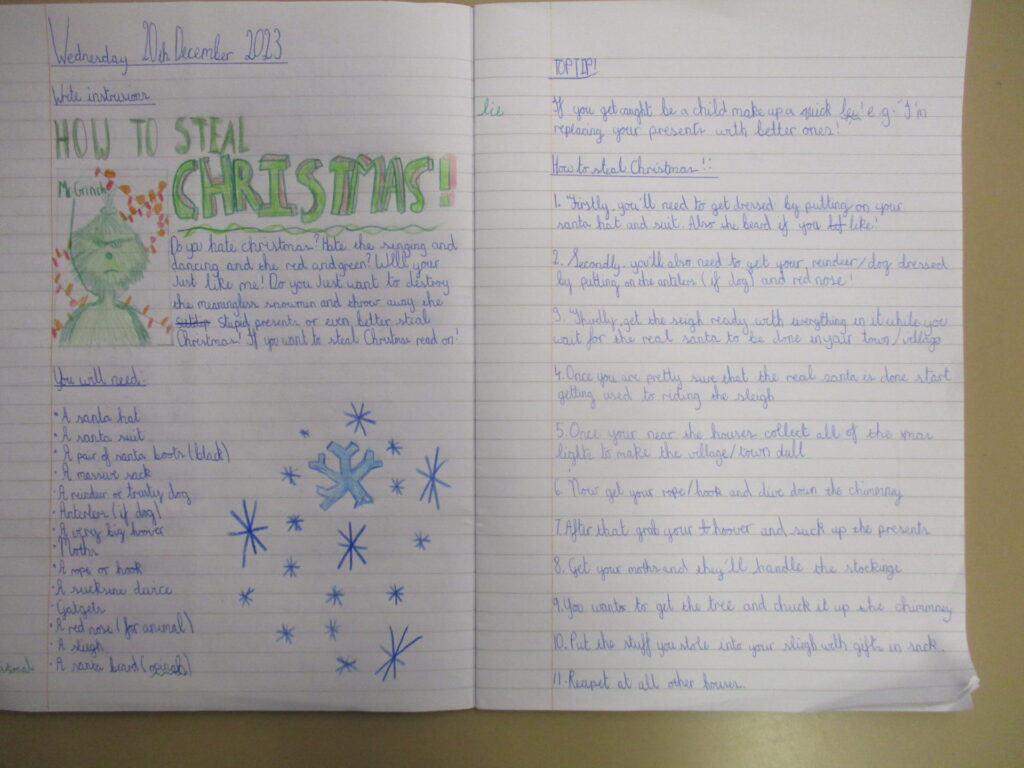 Wednesday 20th December 2023
Write instrusions
HOW TO STEAL
CHRISTMAS!
Mr Grinch
Do you hate christmas? Hate the singing and
dancing and the red and green? Well your
Just like me! Do you Just want to destroy
the meaningless snowmen and throw away the
stupid presents or even better steal
Christmas! If you want to steal Christmas read on!
You will need:
• A santa hat
• A santa suit
• A pair of santa boots (black)
• A massive sack
• A reindeer or trusty dog
• Anterlers (if dog)
• A very big hoover
• Moths
• A rope or hook
• A
• Gatgets
• A red nose (for animal)
• A sleigh
• A santa beard
TOP TIP!
lie
If you get caught be a child make up a quick e.g. "I'm
replacing your presents with better ones!
How to steal Christmas!:
1. Firstly, you'll need to get dressed by putting on your
santa hat and suit. Also the beard if you like!
2. Secondly, you'll also need to get your reindeer/dog dressed
by putting on the antalers (if dog) and red nose!
3. Thirdly, get the sleigh ready with everything in it while you
wait for the real santa to be done in your town/village
4. Once you are pretty sure that the real santa is done start
getting used to riding the sleigh
5. Once your near the houses collect all of the xmas
lights to make the village/town dull
6. Now get your rope/hook and dive down the chimmney
7. After that grab your hoover and suck up the presents
8. Get your moths and they'll handle the stockings
9. You want to get the tree and chuck it up the chimmney
10. Put the stuff you stole into your sleigh with gifts in sack.
11. Reapet at all other houses.